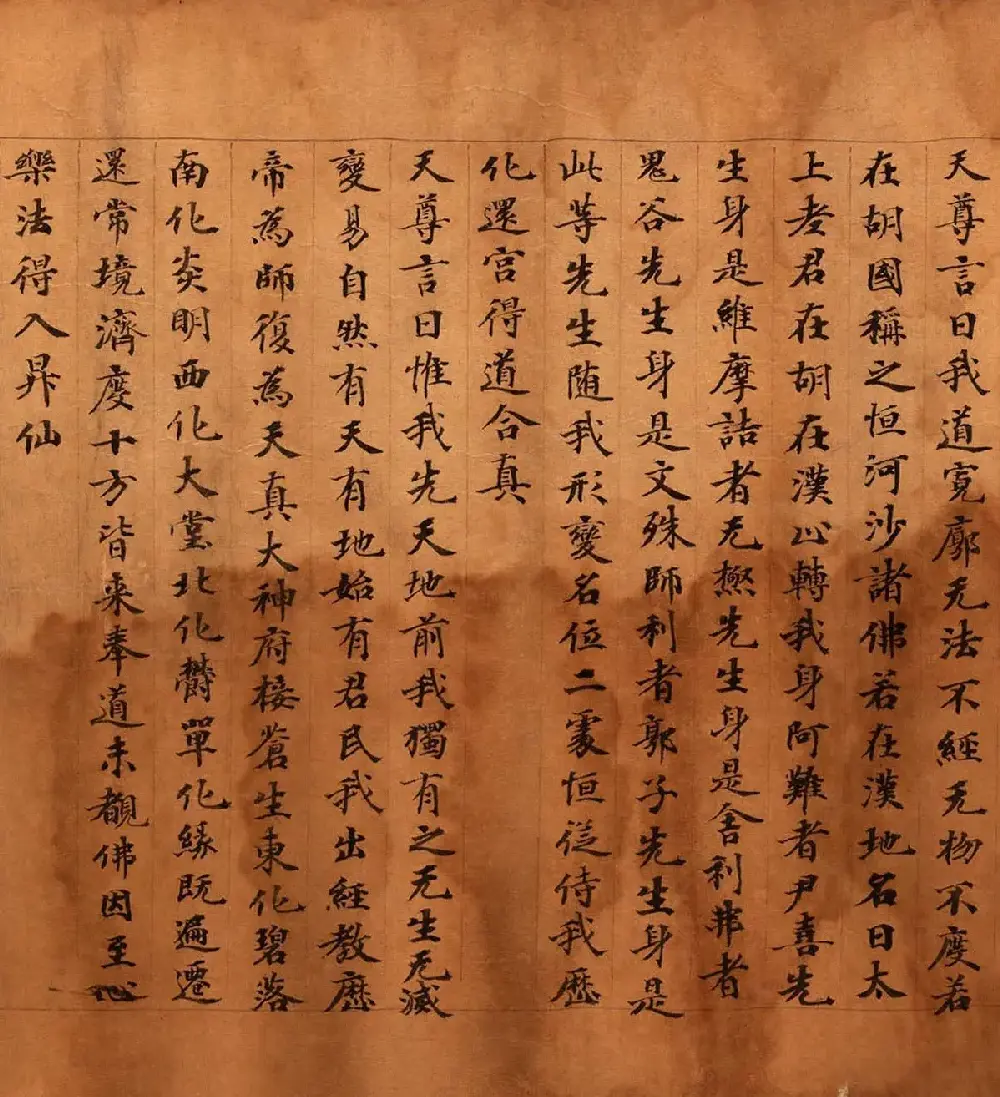 天尊言曰我道寛廓无法不經无物不度若
在胡國稱之恒河沙諸佛若在漢地名曰太
上老君在胡在漢心轉我身阿難者尹喜先
生身是維摩詰者无㷱先生身是舍利弗者
鬼谷先生身是文殊師利者郭子先生身是
此等先生随我形變名位二處恒從侍我歷
化還宫得道合真
天尊言曰惟我先天地前我獨有之无生无滅
變易自然有天有地始有君民我出經教歷
帝為師復為天真大神府接蒼生東化碧落
南化炎明西化大堂北化欝單化緣既遍遷
還常境濟度十方皆来奉道未覩佛因至心
樂法得入昇仙